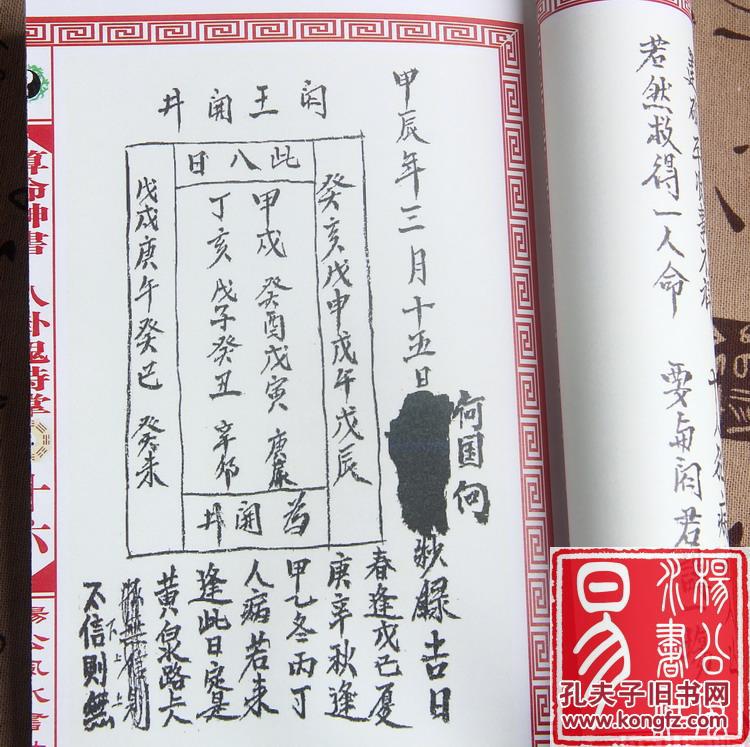 若然救得一人命 要与闫君
甲辰年三月十五日
何国向
抄録吉日
闫王開井
此八日
癸亥戊申戊午戊辰
甲戌 癸酉戊寅
丁亥 戊子癸丑 辛卯
戊戌庚午癸巳 癸未
为開井
春逢戊己夏
庚辛秋逢
甲乙冬丙丁
人病若来
逢此日定是
黄泉路上
不信則無
算命神書 八卦鬼時掌
十六
楊公風水書
孔夫子旧书网
www.kongfz.com